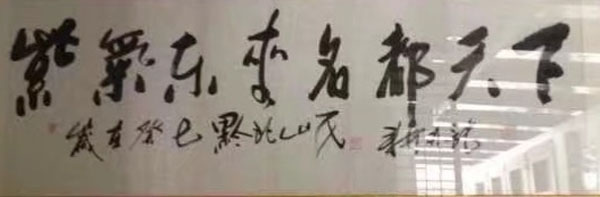 紫氣东来名都天下
歲在癸巳黔北山民